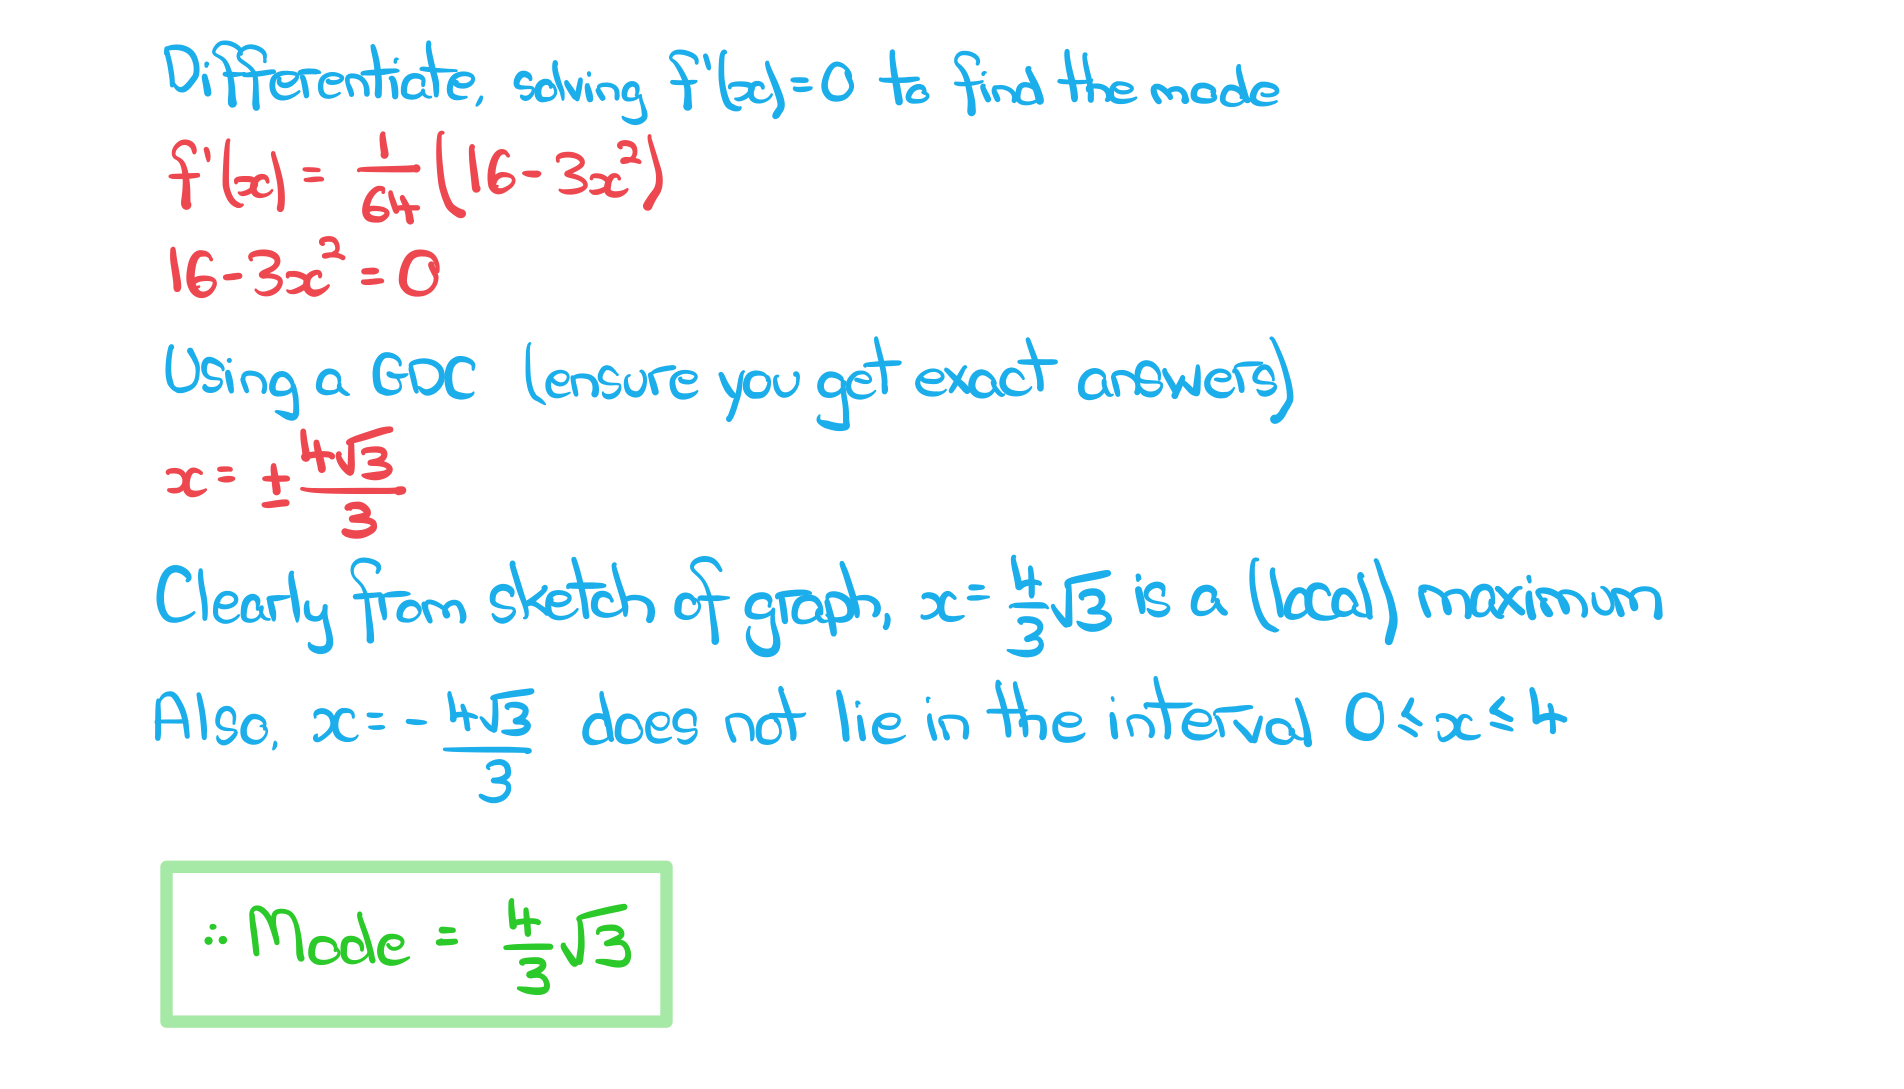 Differentiate, solving f'(x)=0 to find the mode
f'(x) = 1/64 (16-3x²)
16-3x² = 0
Using a GDC (ensure you get exact answers)
x = ± 4√3/3
Clearly from sketch of graph, x = 4/3 √3 is a (local) maximum
Also, x = - 4√3/3 does not lie in the interval 0 ≤ x ≤ 4
∴ Mode = 4/3 √3